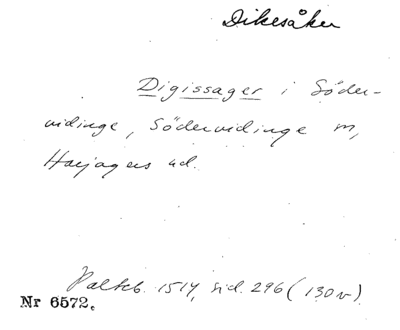 Dikesåker
Digissager i Söder-
vidinge, Södervidinge m,
Harjagers hd.
Palteb. 1514, sid. 296 (130 v)
Nr 6572.